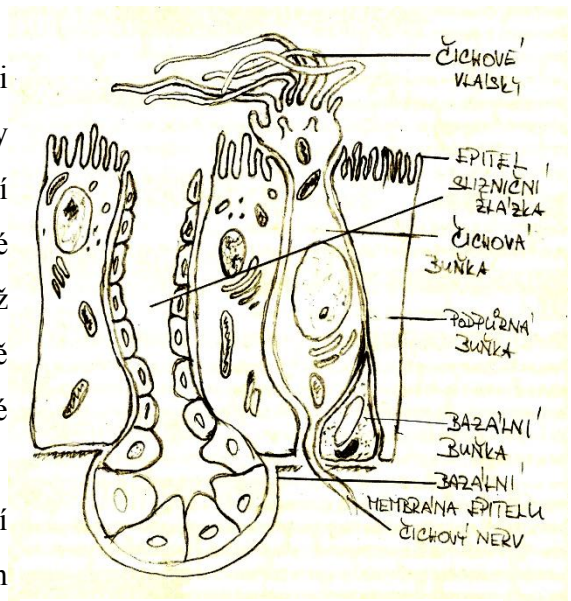 i
y
í
é
ž
ě
é
í
ČICHOVÉ
VLÁSKY
EPITEL
SLIZNIČNÍ
ŽLÁZKA
ČICHOVÁ
BUŇKA
PODPŮRNÁ
BUŇKA
BAZÁLNÍ
BUŇKA
BAZÁLNÍ
MEMBRÁNA EPITELU
ČICHOVÝ NERV